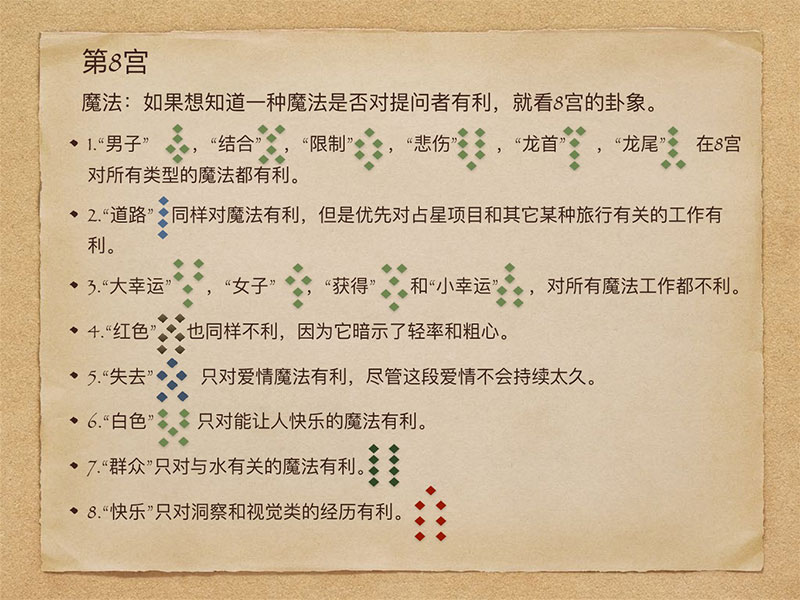 第8宫
魔法：如果想知道一种魔法是否对提问者有利，就看8宫的卦象。
1.“男子” ，“结合” ，“限制” ，“悲伤” ，“龙首” ，“龙尾” 在8宫
对所有类型的魔法都有利。
2.“道路” 同样对魔法有利，但是优先对占星项目和其它某种旅行有关的工作有
利。
3.“大幸运” ，“女子” ，“获得” 和“小幸运” ，对所有魔法工作都不利。
4.“红色” 也同样不利，因为它暗示了轻率和粗心。
5.“失去” 只对爱情魔法有利，尽管这段爱情不会持续太久。
6.“白色” 只对能让人快乐的魔法有利。
7.“群众”只对与水有关的魔法有利。
8.“快乐”只对洞察和视觉类的经历有利。